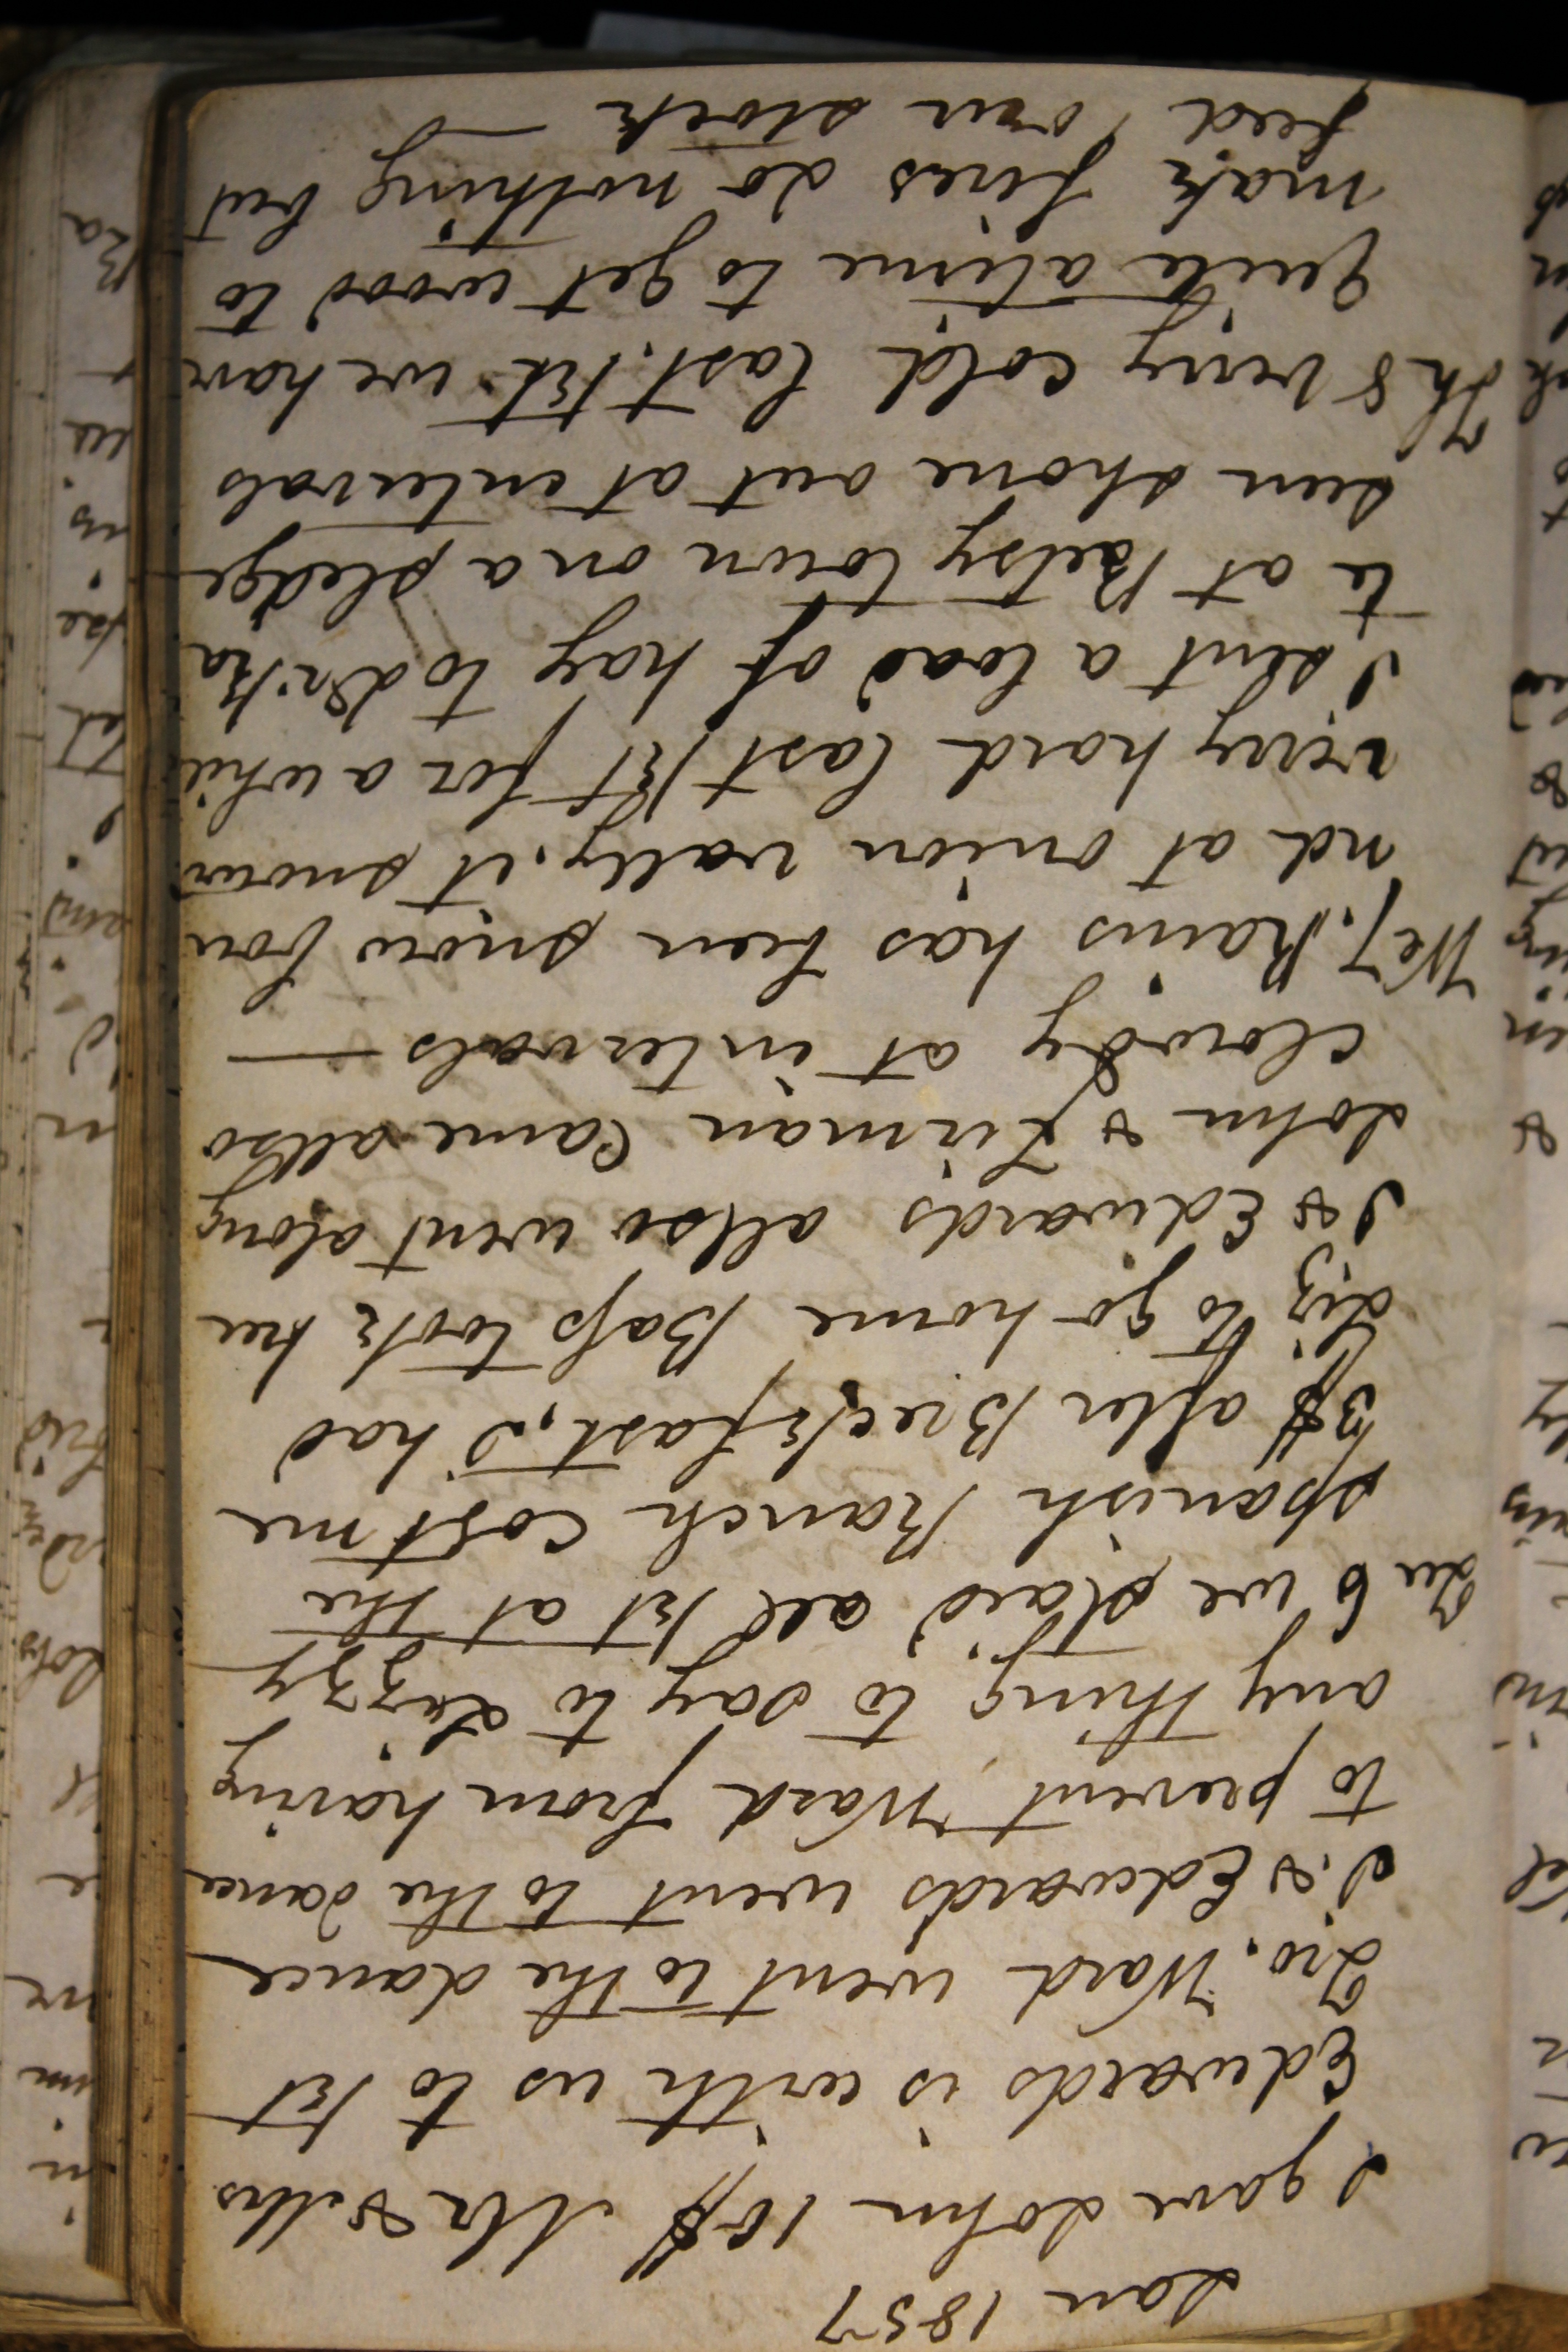 Jan 1857
I gave John 10$ Mr & Mrs
Edwards is with us to Nt
Geo. Ward went to the dance
I. & Edwards went to the dance
to prevent Ward from having
any thing to say to Lizzy
Tu 6 we staid all Nt at the
Spanish Ranch cost me
3$ after Breckfast, I had
Liz, to go home Bass took her
I & Edwards allso went along
John & Firman Came allso
Clowdy at intervals —
We 7. Rains has been snow bou
nd at onion vally. it snowed
verry hard last Nt for a while
I sent a load of hay to
te at Betsy town on a pledge
sun shone out at intervals
Th 8 verry cold last. Nt. we have
Quite a time to get wood to
mak fires do nothing but
feed our stock —